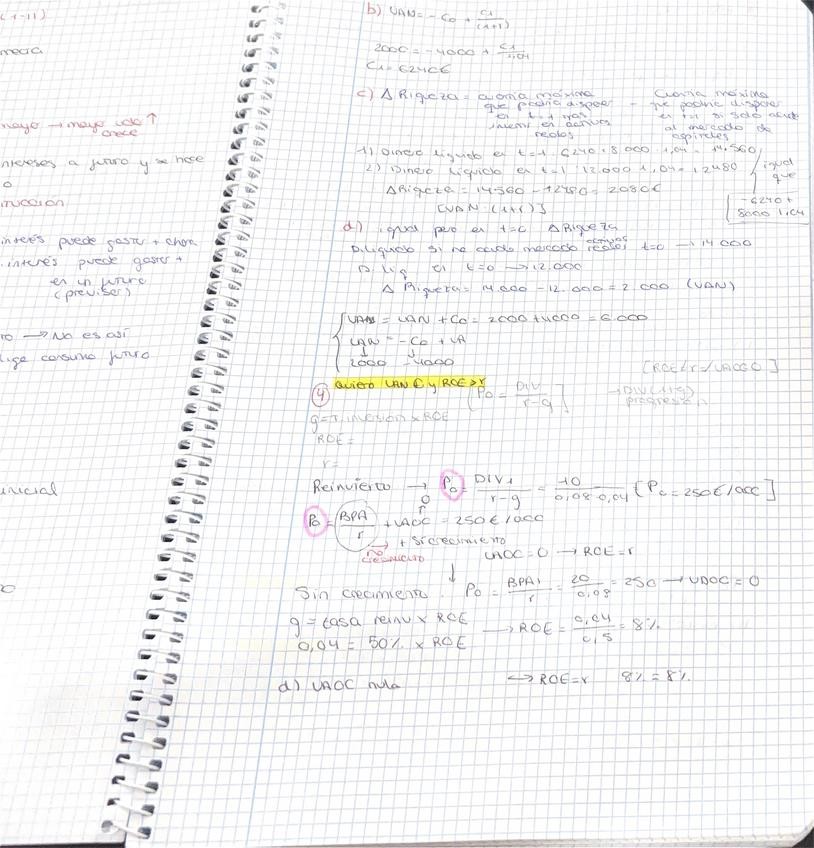 (1-11)
mayo → mayo valor ↑
crece
intereses a futuro y se hace
interés puede gastar + ahora
interés puede gastar +
en un futuro
(previsor)
→ No es así
consumo futuro
inicial
b) VAN = -C0 + C1/(1+1)
2000 = -4000 + C1/1,04
C1 = 6240€
c) Δ Riqueza = cuantía máxima que podría disponer en t=1 tras invertir en activos reales - cuantía máxima que podría disponer en t=1 si solo acude al mercado de capitales
1) Dinero líquido en t=1 6240 + 8000 · 1,04 = 14.560
2) Dinero líquido en t=1 12.000 · 1,04 = 12480
igual que
-6240 + 8000 · 1,04
Δ Riqueza = 14.560 - 12480 = 2080€
[VAN · (1+1)]
d) igual pero en t=0 Δ Riqueza
D. líquido si no acudo mercado activos reales t=0 → 14 000
D. liq en t=0 → 12.000
Δ Riqueza = 14.000 - 12.000 = 2 000 (VAN)
VAN = VAN + C0 = 2000 + 4000 = 6.000
VAN = -C0 + VA
2000 -4000
[ROE<r = VAOC<0]
4 Quiero VAN € y ROE > r
[P0 = DIV/r-g]
→ DIV(1+g)
g = T. inversión x ROE
ROE =
r =
Reinvierto → P0 = DIV1/r-g = 10/0,08-0,04 [P0 = 250€/acc]
P0 = BPA/r + VAOC = 250€/acc
→ + si crecimiento
no crecimiento
VAOC = 0 → ROE = r
Sin crecimiento. P0 = BPA1/r = 20/0,08 = 250 → VAOC = 0
g = tasa reinv x ROE
0,04 = 50% x ROE → ROE = 0,04/0,5 = 8%
d) VAOC nula ↔ ROE = r 8% = 8%